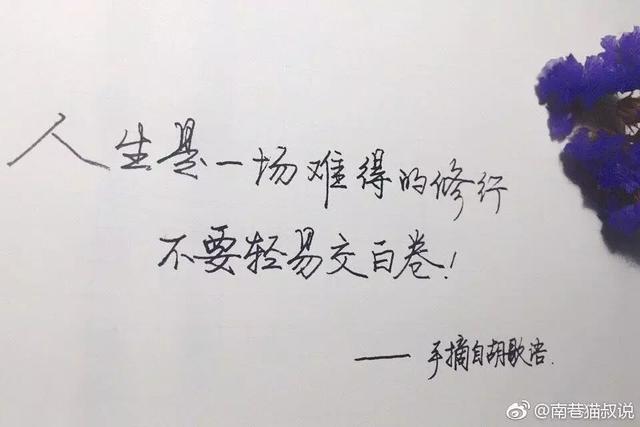 人生是一场难得的修行
不要轻易交白卷!
——手摘自胡歌语.
@南巷猫叔说